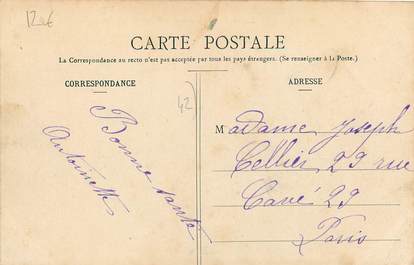 12€
CARTE POSTALE
La Correspondance au recto n'est pas acceptée par tous les pays étrangers. (Se renseigner à la Poste.)
CORRESPONDANCE
ADRESSE
42
Bonne santé
Antoinette
Madame Joseph
Cellier 29 rue
Cavé 29
Paris